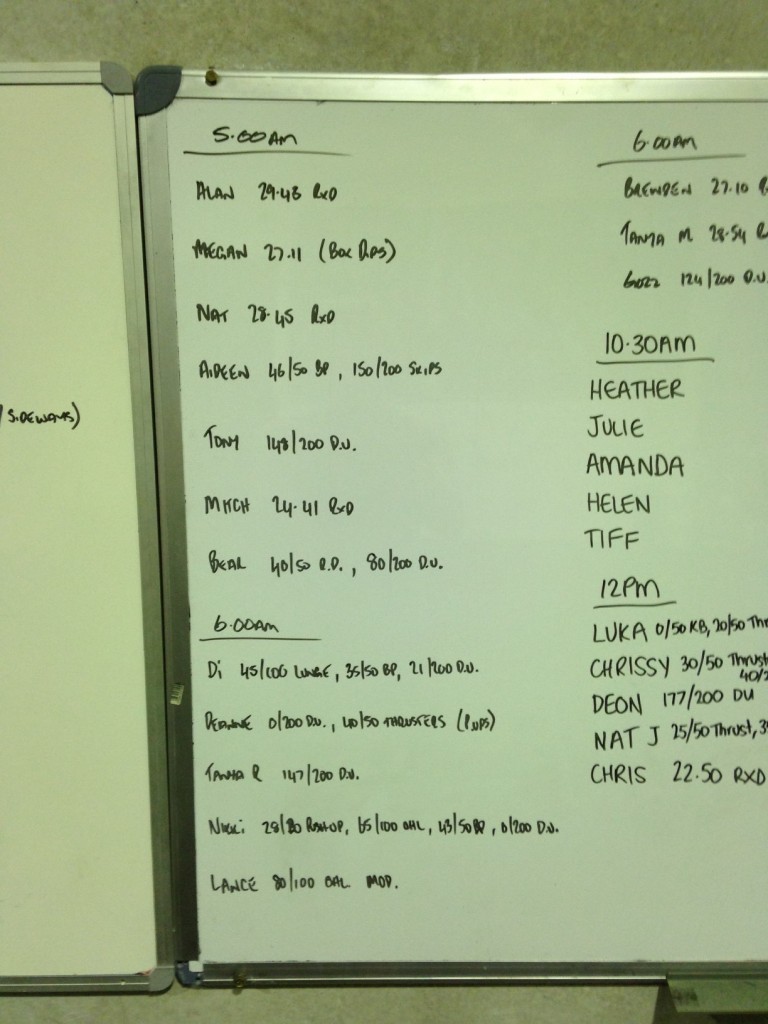 SIDEWAYS)
5.00AM
ALAN 29.48 RXD
MEGAN 27.11 (BOX
NAT 28.45 RXD
AIDEEN 46/50 BP, 150/200 SKIPS
TONY 148/200 D.U.
MITCH 24.41 RXD
BEAR 40/50 R.D., 80/200 D.U.
6.00AM
Di 45/100 LUNGE, 35/50 BP, 21/200 D.U.
DEANNE 0/200 D.U., 40/50 THRUSTERS
TANYA R 147/200 D.U.
Nikki 28/80 PUSHUP, 65/100 OHL, 43/50 BP, 0/200 D.U.
LANCE 80/100 OAL MOD.
6.00AM
BREWDEN 27.10
TANYA M 28.54
124/200 D.U.
10.30AM
HEATHER
JULIE
AMANDA
HELEN
TIFF
12PM
LUKA 0/50 KB, 20/50 Thr
CHRISSY 30/50 Thrust
40/2
DEON 177/200 DU
NAT J 25/50 Thrust,
CHRIS 22.50 RXD